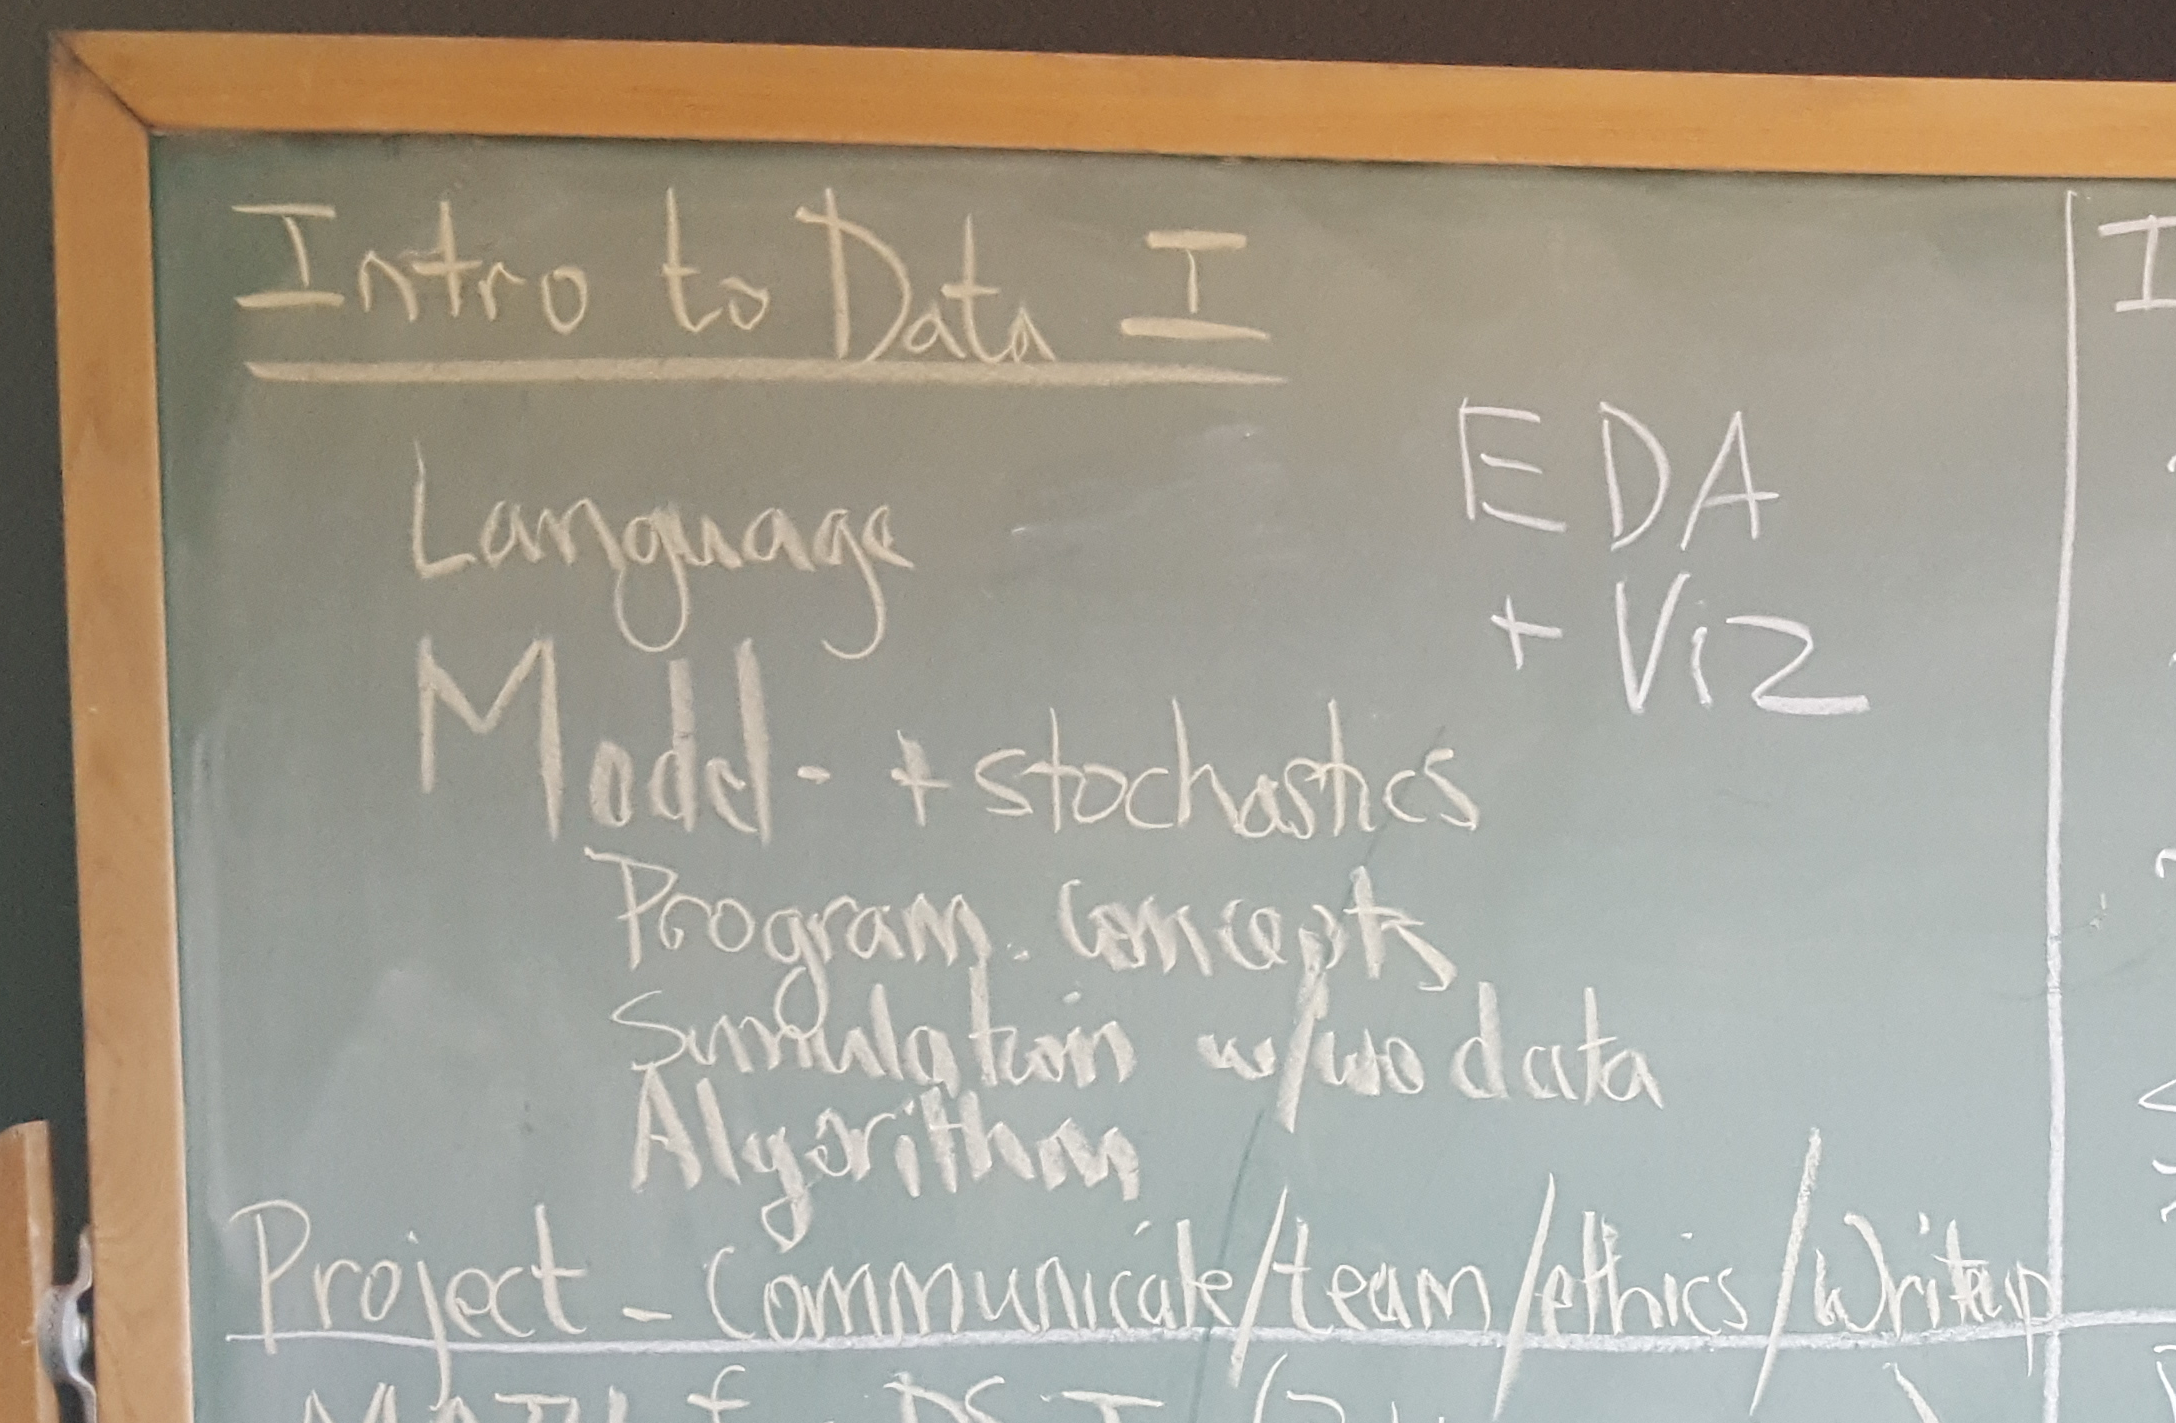 Intro to Data I
Language
EDA
+ Viz
Model - + stochastics
Program. Concepts
Simulation w/wo data
Algorithm
Project - Communicate/team/ethics/Writeup